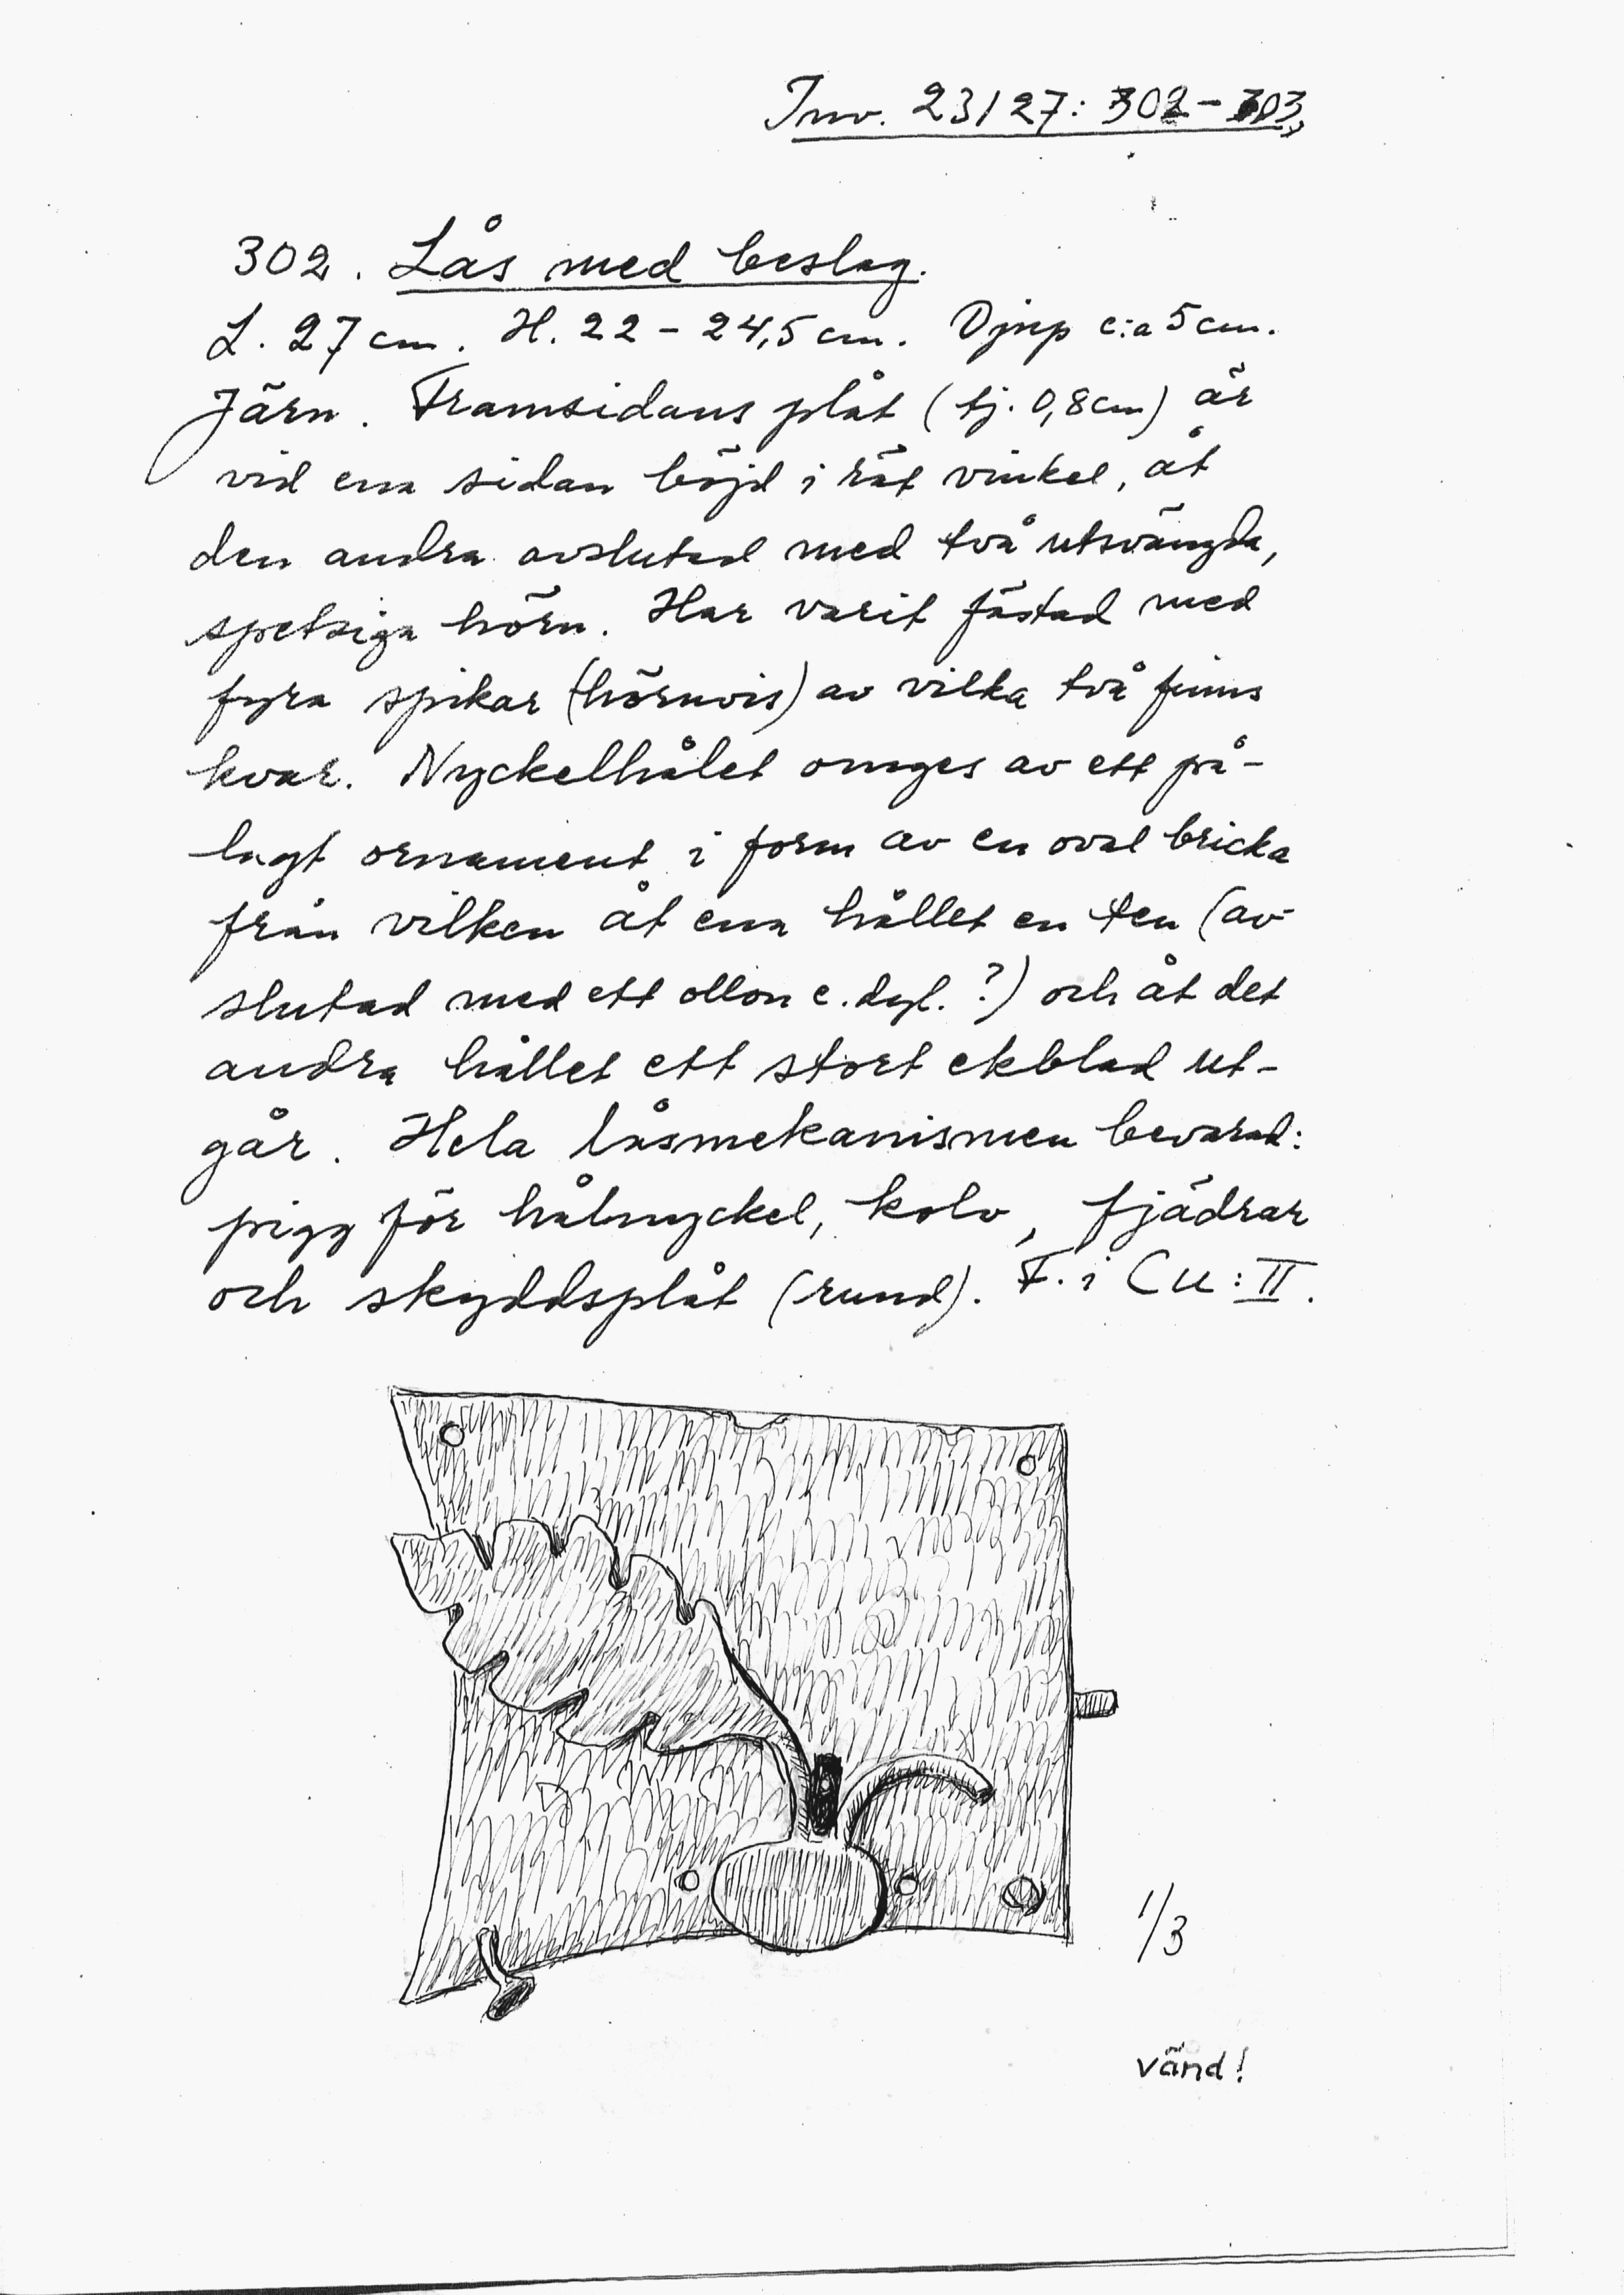 Inv. 23127: 302-303
302. Lås med beslag.
L. 27 cm. H. 22 - 24,5 cm. Djup c:a 5 cm.
Järn. Framsidans plåt (tj. 0,8 cm) är
vid ena sidan böjd i rät vinkel, åt
den andra avslutad med två utsvängda,
spetsiga hörn. Har varit fästad med
fyra spikar (hörnvis) av vilka två finns
kvar. Nyckelhålet omges av ett på-
lagt ornament i form av en oval bricka
från vilken åt ena hållet en ten (av-
slutad med ett ollon e. dyl. ?) och åt det
andra hållet ett stort ekblad ut-
går. Hela låsmekanismen bevarad:
pigg för hålnyckel, kolv, fjädrar
och skyddsplåt (rund). F. i Cu: II.
1/3
vänd!